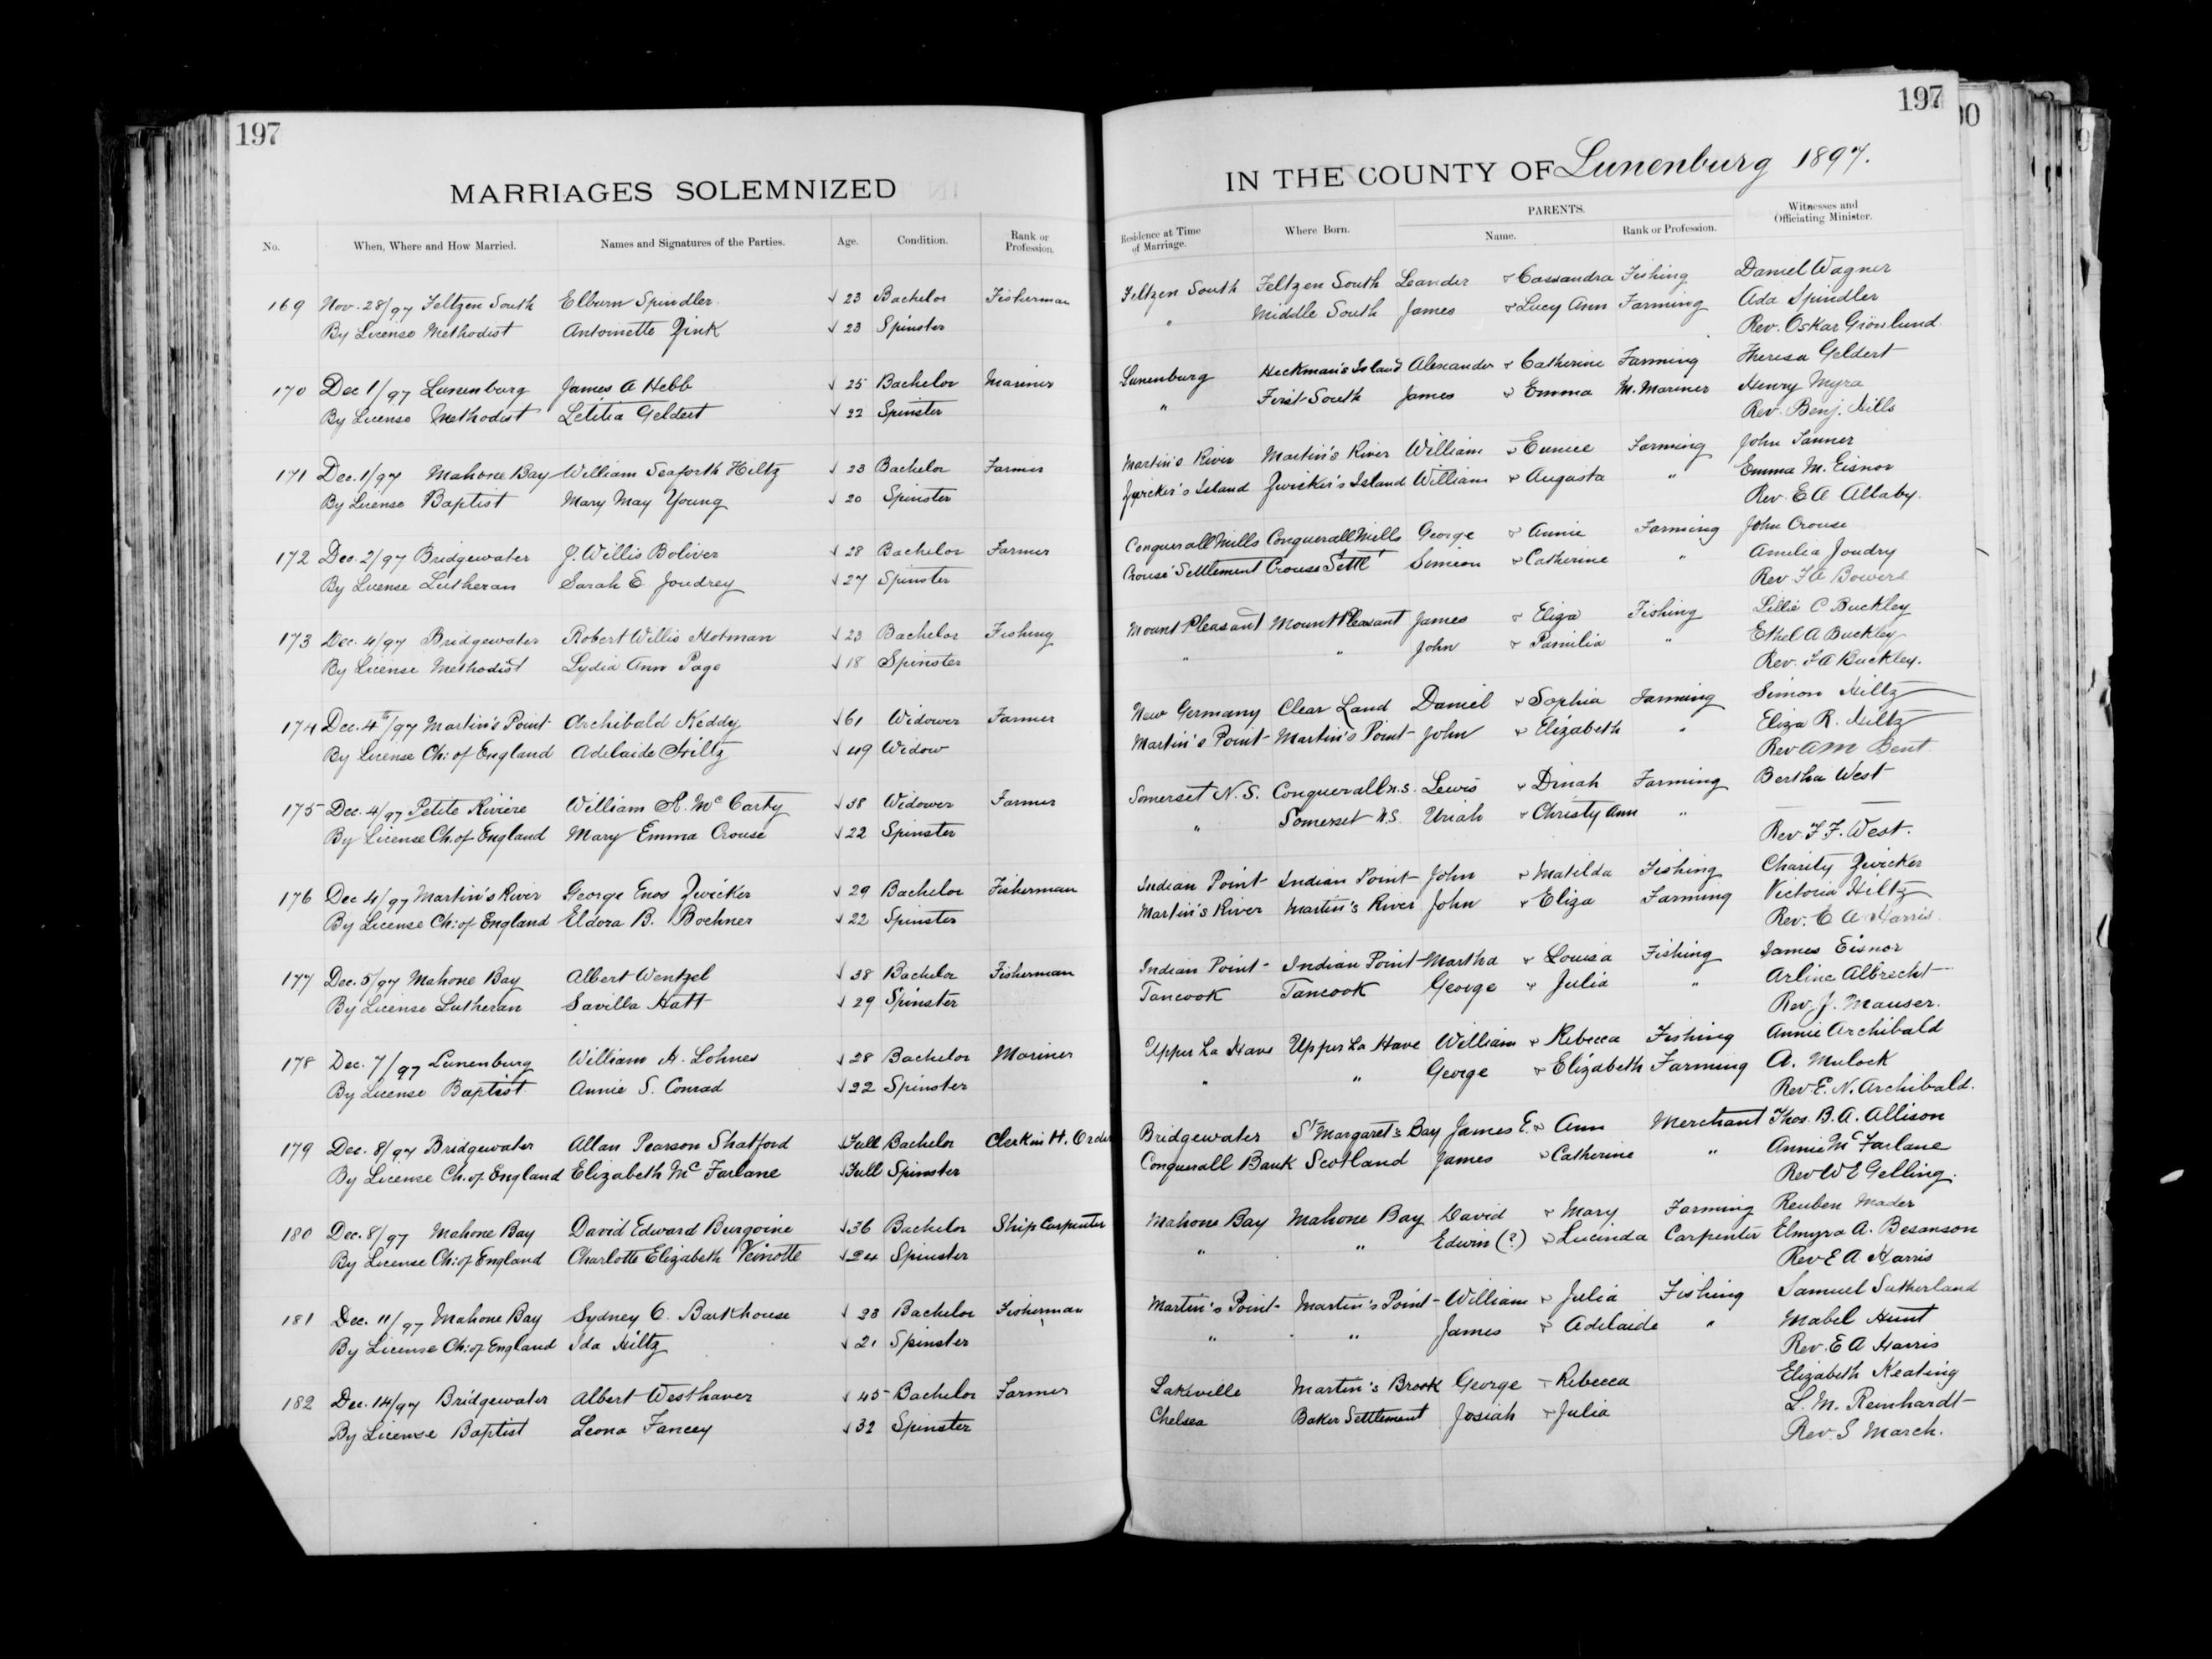 197
MARRIAGES SOLEMNIZED
No. When, Where and How Married. Names and Signatures of the Parties. Age. Condition. Rank or Profession.
169 Nov. 28/97 Feltzen South Elburn Spindler 23 Bachelor Fisherman
By License Methodist Antoinette Zink 23 Spinster
170 Dec 1/97 Lunenburg James A Hebb 25 Bachelor Mariner
By License Methodist Letitia Geldert 22 Spinster
171 Dec. 1/97 Mahone Bay William Seaforth Hiltz 23 Bachelor Farmer
By License Baptist Mary May Young 20 Spinster
172 Dec. 2/97 Bridgewater J. Willis Boliver 28 Bachelor Farmer
By License Lutheran Sarah E. Joudrey 27 Spinster
173 Dec. 4/97 Bridgewater Robert Willis Hotman 23 Bachelor Fishing
By License Methodist Lydia Ann Page 18 Spinster
174 Dec. 4th/97 Martin's Point Archibald Keddy 61 Widower Farmer
By License Ch: of England Adelaide Hiltz 49 Widow
175 Dec. 4/97 Petite Rivière William R. Mc Carty 38 Widower Farmer
By License Ch. of England Mary Emma Crouse 22 Spinster
176 Dec 4/97 Martin's River George Enos Zwicker 29 Bachelor Fisherman
By License Ch: of England Eldora B. Bochner 22 Spinster
177 Dec. 5/97 Mahone Bay Albert Wentzel 38 Bachelor Fisherman
By License Lutheran Savilla Hatt 29 Spinster
178 Dec. 7/97 Lunenburg William H. Lohnes 28 Bachelor Mariner
By License Baptist Annie S. Conrad 22 Spinster
179 Dec. 8/97 Bridgewater Allan Pearson Shatford Full Bachelor Clerk in H. Order
By License Ch. of England Elizabeth Mc Farlane Full Spinster
180 Dec. 8/97 Mahone Bay David Edward Burgoine 36 Bachelor Ship Carpenter
By License Ch: of England Charlotte Elizabeth Veinotte 24 Spinster
181 Dec. 11/97 Mahone Bay Sydney C. Barkhouse 23 Bachelor Fisherman
By License Ch: of England Ida Hiltz 21 Spinster
182 Dec. 14/97 Bridgewater Albert Westhaver 45 Bachelor Farmer
By License Baptist Leona Fancey 32 Spinster
197
IN THE COUNTY OF Lunenburg 1897.
Residence at Time of Marriage. Where Born. PARENTS. Name. Rank or Profession. Witnesses and Officiating Minister.
Feltzen South Feltzen South Leander & Cassandra Fishing Daniel Wagner
" Middle South James & Lucy Ann Farming Ada Spindler
Rev. Oskar Grönlund
Lunenburg Heckman's Island Alexander & Catherine Farming Theresa Geldert
" First South James & Emma M. Mariner Henry Myra
Rev. Benj. Hills
Martin's River Martin's River William & Eunice Farming John Tanner
Zwicker's Island Zwicker's Island William & Augusta " Emma M. Eisnor
Rev. E A Allaby.
Conquerall Mills Conquerall Mills George & Annie Farming John Crouse
Crouse Settlement Crouse Settlt Simeon & Catherine " Amelia Joudry
Rev. F A Bowers
Mount Pleasant Mount Pleasant James & Eliza Fishing Lillie C Buckley
" " John & Pamilia " Ethel A Buckley
Rev. F A Buckley.
New Germany Clear Land Daniel & Sophia Farming Simon Hiltz
Martin's Point Martin's Point John & Elizabeth " Eliza R. Hiltz
Rev A M Bent
Somerset N.S. Conquerall N.S. Lewis & Dinah Farming Bertha West
" Somerset N.S. Uriah & Christy Ann "
Rev. F F. West.
Indian Point Indian Point John & Matilda Fishing Charity Zwicker
Martin's River Martin's River John & Eliza Farming Victoria Hiltz
Rev. E A Harris
Indian Point Indian Point Martha & Louisa Fishing James Eisnor
Tancook Tancook George & Julia " Arline Albrecht
Rev. J. Mauser.
Upper La Have Upper La Have William & Rebecca Fishing Annie Archibald
" " George & Elizabeth Farming A. Mulock
Rev E. N. Archibald.
Bridgewater St Margaret's Bay James E. & Ann Merchant Thos. B. A. Allison
Conquerall Bank Scotland James & Catherine " Annie Mc Farlane
Rev W E Gelling.
Mahone Bay Mahone Bay David & Mary Farming Reuben Mader
" " Edwin (?) & Lucinda Carpenter Elmyra A. Besanson
Rev E A Harris
Martin's Point Martin's Point William & Julia Fishing Samuel Sutherland
" " James & Adelaide " Mabel Hunt
Rev. E A Harris
Lakeville Martin's Brook George & Rebecca Elizabeth Keating
Chelsea Baker Settlement Josiah & Julia L. M. Reinhardt
Rev. S March.